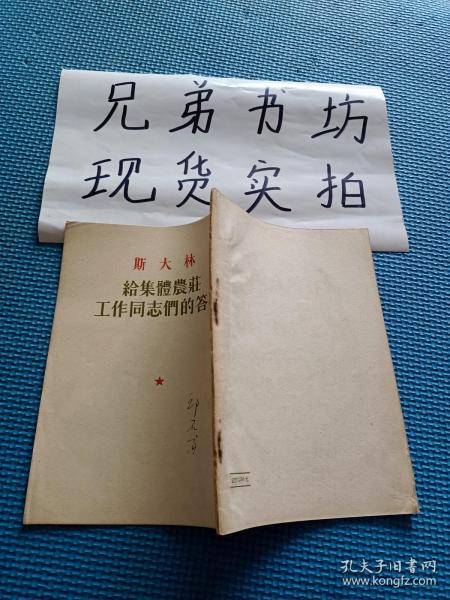 兄弟书坊
现货实拍
斯大林
給集體農莊
工作同志們的答
孔夫子旧书网
www.kongfz.com